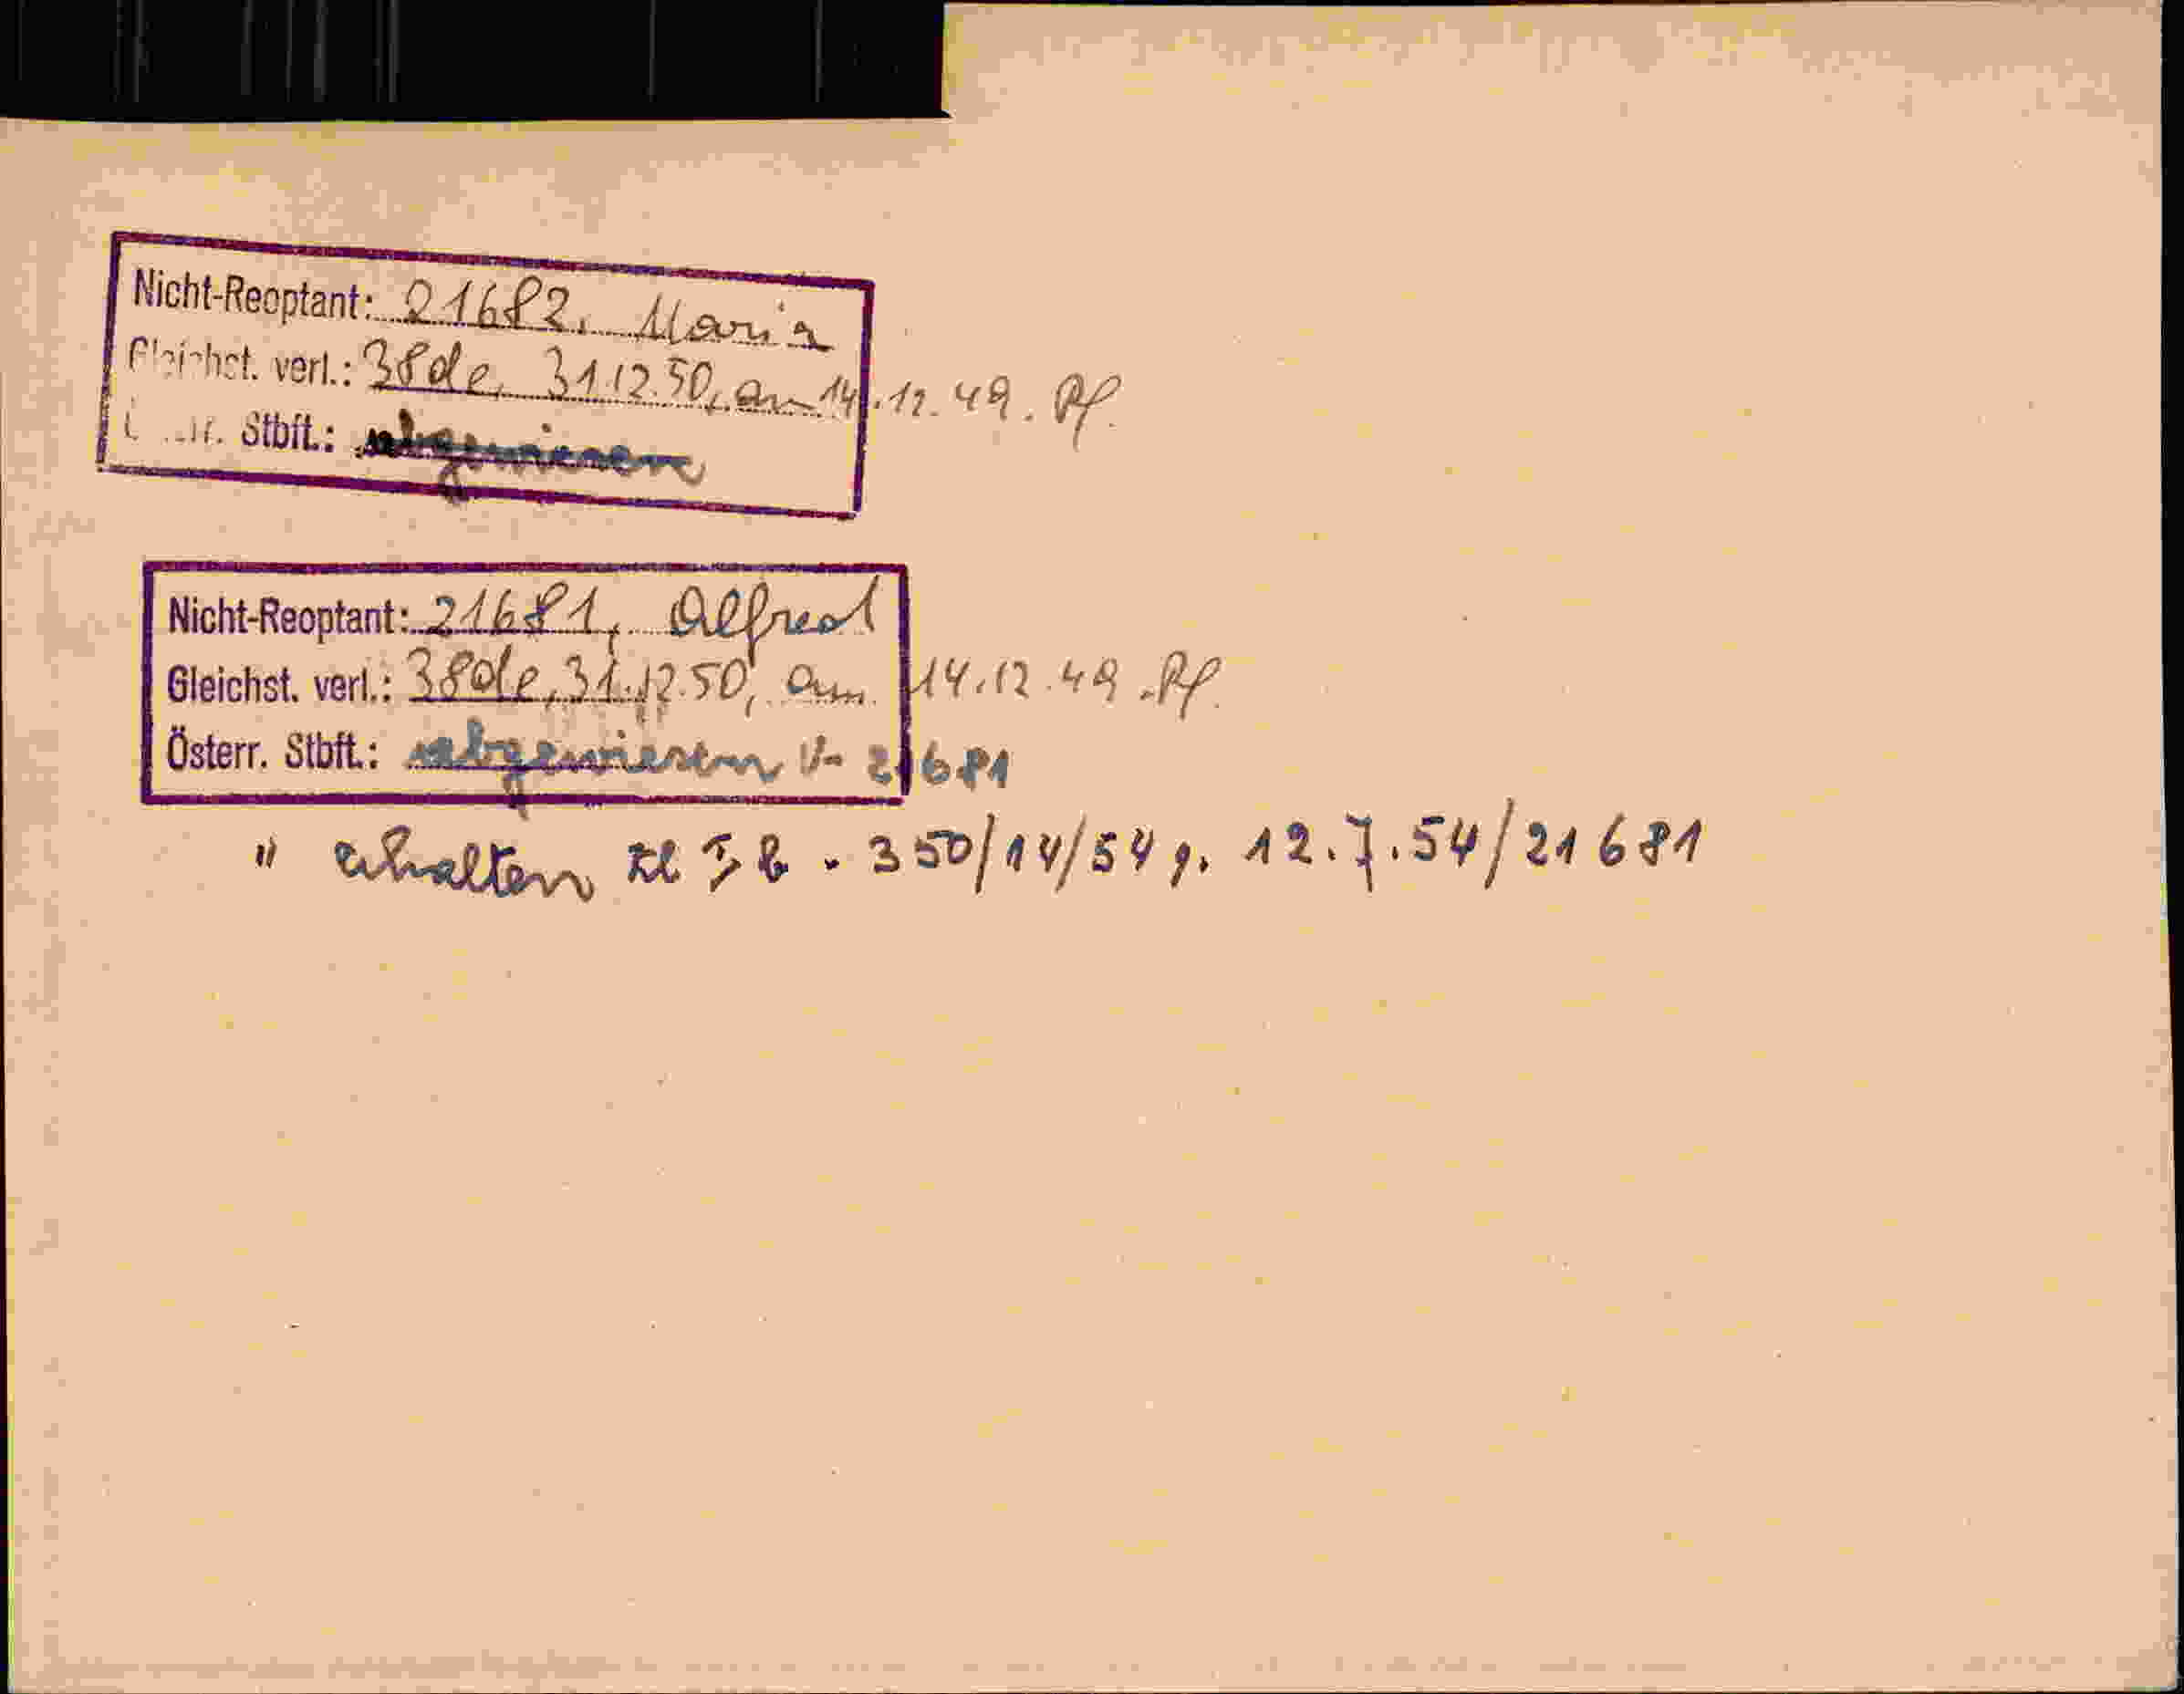 Nicht-Reoptant: 21682, Maria
Gleichst. verl.: 38de, 31.12.50, am 14.12.49. Pf.
Stbft.: abgewiesen
Nicht-Reoptant: 21681, Alfred
Gleichst. verl.: 38de, 31.12.50, am 14.12.49. Pf.
Österr. Stbft.: abgewiesen 21681
" erhalten Zl I b - 350/14/54 v. 12.7.54/21681